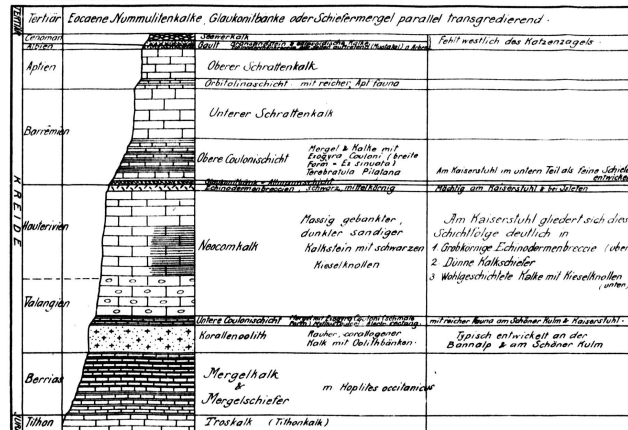 TERTIÄR
Tertiär
Eocaene Nummulitenkalke, Glaukonitbanke oder Schiefermergel parallel transgredierend.
Cenoman
Seewerkalk
Albien
Gault
Fehlt westlich des Katzenzagels.
Aptien
Oberer Schrattenkalk
Orbitolinaschicht mit reicher Apt fauna
KREIDE
Barrêmien
Unterer Schrattenkalk
Obere Coulonischicht
Mergel & Kalke mit
Exogyra Couloni (breite
Form = Ex sinuata)
Terebratula Pilatana
Am Kaiserstuhl im untern Teil als feine
Echinodermenbreccien, schwarz, mittelkörnig
Mächtig am Kaiserstuhl & bei Jsleten
Hauterivien
Neocomkalk
Massig gebankter,
dunkler sandiger
Kalkstein mit schwarzen
Kieselknollen
Am Kaiserstuhl gliedert sich
Schichtfolge deutlich in
1 Grobkörnige Echinodermenbreccie
2 Dünne Kalkschiefer
3 Wohlgeschichtete Kalke mit Kieselknollen
(unten)
Valangien
Untere Coulonischicht
mit reicher Fauna am Schöner Kulm & Kaiserstuhl.
Korallenoolith
Rauher, corallogener
Kalk mit Oolithbänken.
Typisch entwickelt an der
Bannalp & am Schöner Kulm
Berrias
Mergelkalk
&
Mergelschiefer
m Hoplites occitanicus
Tithon
Troskalk (Tithonkalk)